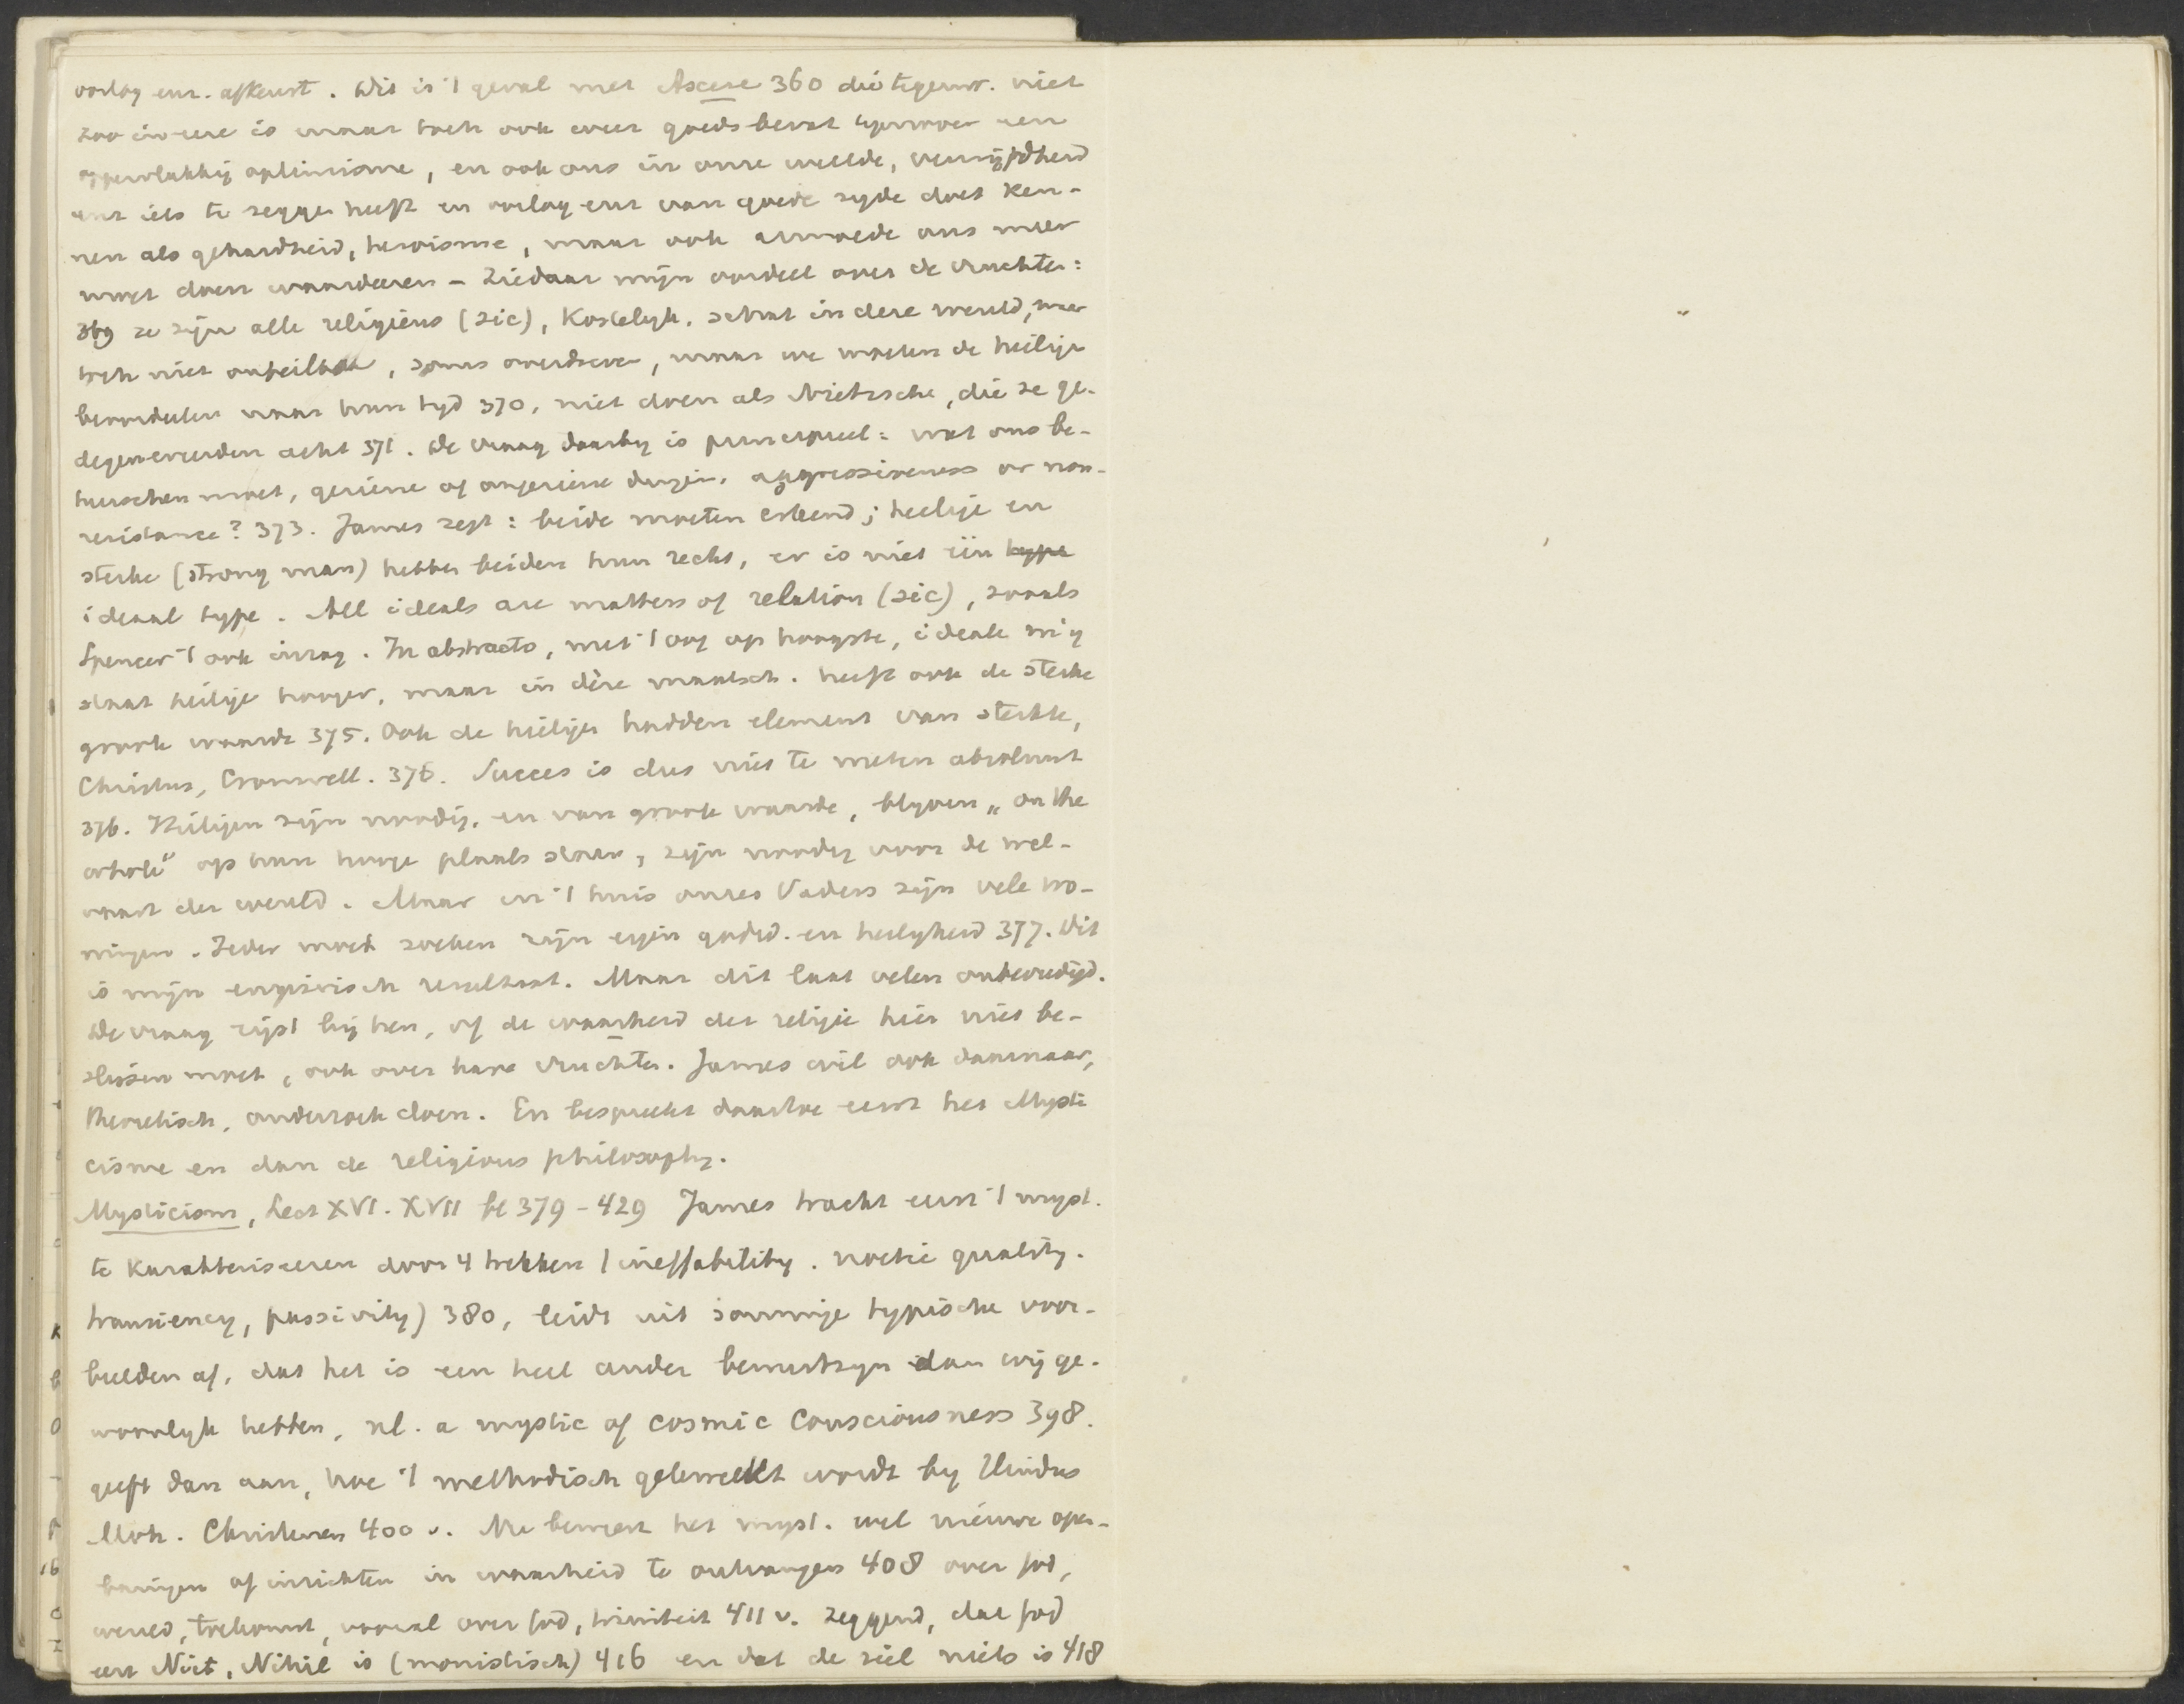 oorlog enz. afkeurt. Dit is 't geval met Ascese 360 die tegenw. niet
zoo in eere is maar toch ook veel goeds bevat tegenover een
oppervlakkig optimisme, en ook ons in onze weelde, verwijfdheid
enz iets te zeggen heeft en oorlog enz van goede zyde doet ken-
nen als gehardheid, heroisme, maar ook armoede ons meer
moet doen waardeeren - Ziedaar mijn oordeel over de vruchten:
369 ze zijn alle religieus (sic), Kostelijk. schat in deze wereld, maar
toch niet onfeilbaar, soms overdreven, maar we moeten de heilige
beoordeelen naar hun tyd 370, niet doen als Nietzsche, die ze ge-
degenereerden acht 371. De vraag daarby is principieel: wat ons be-
heerschen moet, geziene of ongeziene dingen, aggressiveness or non-
resistance? 373. James zegt: beide moeten erkend; heilige en
sterke (strong man) hebben beiden hun recht, er is niet één type
ideaal type. All ideals are matters of relation (sic), zooals
Spencer 't ook inzag. In abstracto, met 't oog op hoogste, ideale mij
staat heilige hooger, maar in déze maatsch. heeft ook de sterke
groote waarde 375. Ook de heiligen hadden element van sterkte,
Christus, Cromwell. 376. Succes is dus niet te meten absoluut
376. Heiligen zijn noodig, en van groote waarde, blyven "on the
whole" op hun hooge plaats staan, zijn noodig voor de wel-
vaart der wereld. Maar in 't huis onzes Vaders zijn vele wo-
ningen. Ieder moet zoeken zijn eigen godsd. en heiligheid 377. Dit
is mijn empirisch resultaat. Maar dit laat velen onbevredigd.
De vraag rijst bij hen, of de waarheid der religie hier niet be-
slissen moet, ook over hare vruchten. James wil ook daarnaar,
theoretisch, onderzoek doen. En bespreekt daartoe eerst het Mysti
cisme en dan de religious philosophy.
Mysticism, Lect XVI. XVII bl 379 - 429 James tracht eerst 't myst.
te karakteriseeren door 4 trekken (ineffability. noetic quality.
transiency, passivity) 380, leidt uit sommige typische voor-
beelden af, dat het is een heel ander bewustzyn dan wij ge-
woonlyk hebben, nl. a mystic of cosmic Consciousness 398.
geeft dan aan, hoe 't methodisch gekweekt wordt by Hindus
Moh. Christenen 400 v. Nu beweert het myst. wel nieuwe open-
baringen of inzichten in waarheid te ontvangen 408 over God,
wereld, toekomst, vooral over God, triniteit 411 v. zeggend, dat God
een Niet, Nihil is (monistisch) 416 en dat de ziel niets is 418